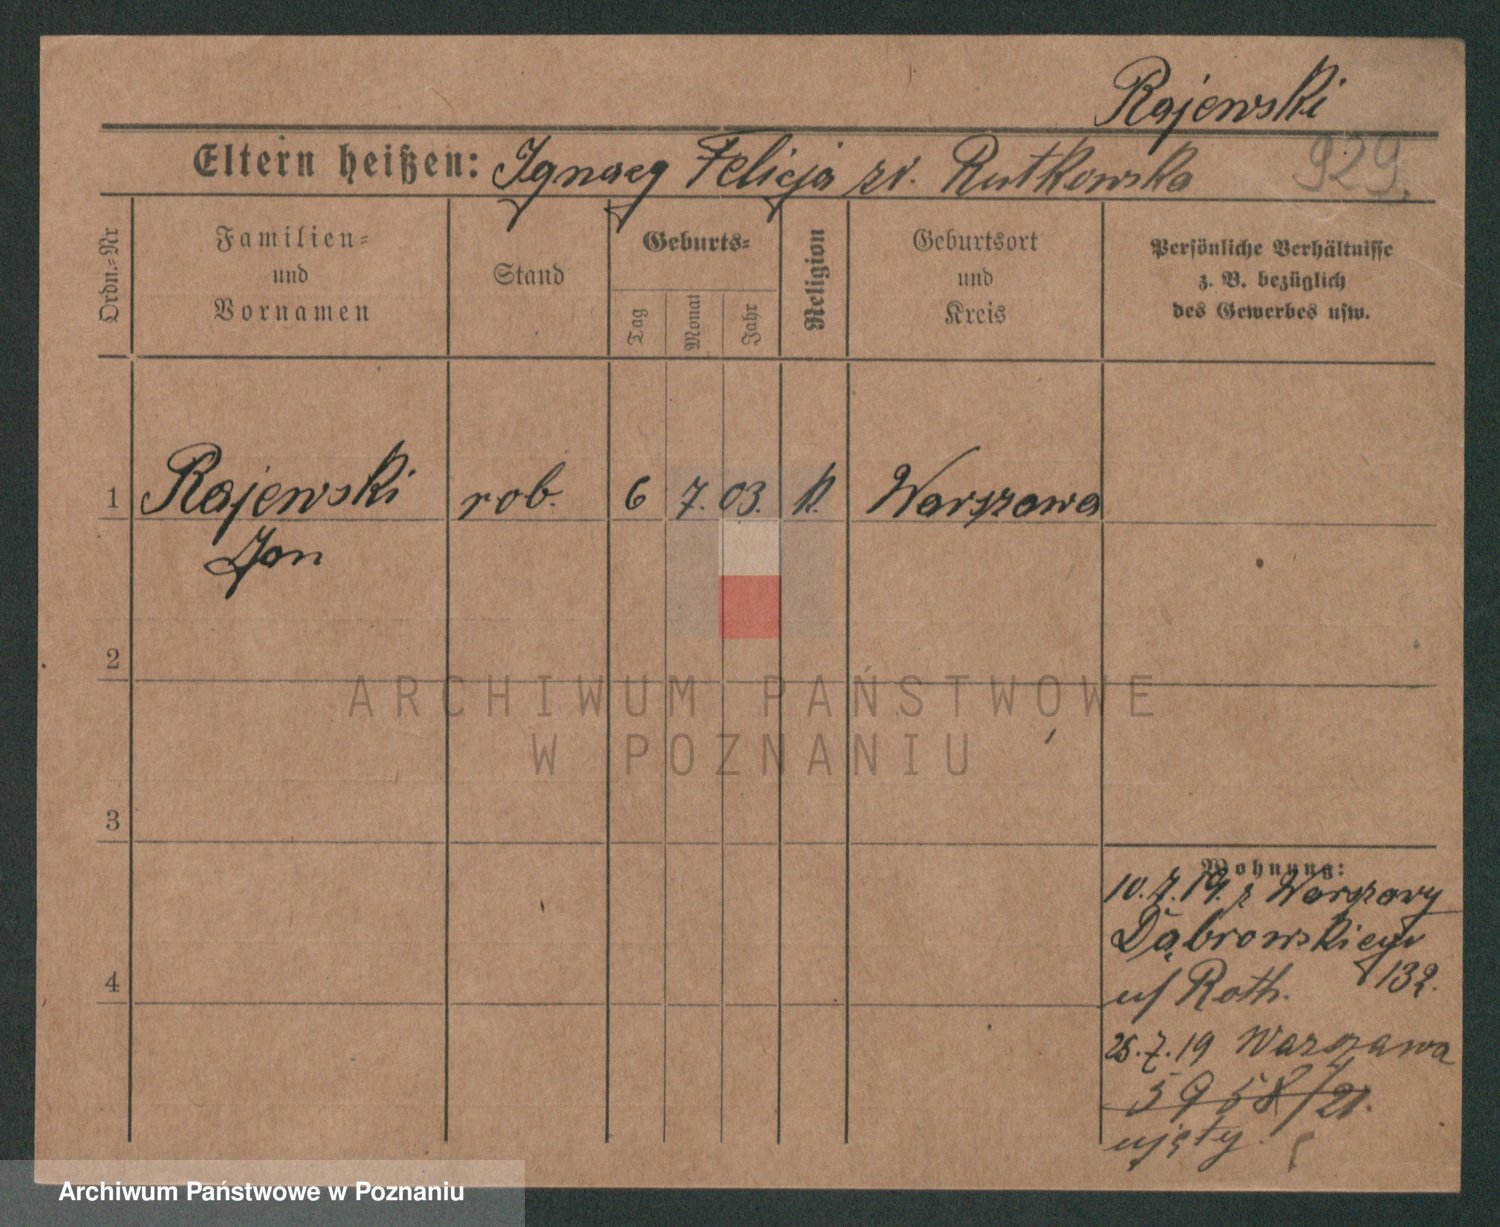 Rajewski
Eltern heißen: Ignacy Felicja zd. Rutkowska 929.
Ordn.-Nr
Familien-
und
Vornamen
Stand
Geburts-
Tag
Monat
Jahr
Religion
Geburtsort
und
Kreis
Persönliche Verhältnisse
z. B. bezüglich
des Gewerbes usw.
1 Rajewski rob. 6 7. 03. k. Warszawa
Jan
2
ARCHIWUM PAŃSTWOWE
W POZNANIU
3
Wohnung:
10.7.19. z Warszawy
Dąbrowskiego
132.
u/ Roth.
4
25.7.19 Warszawa
5958/21.
ujęty.
Archiwum Państwowe w Poznaniu